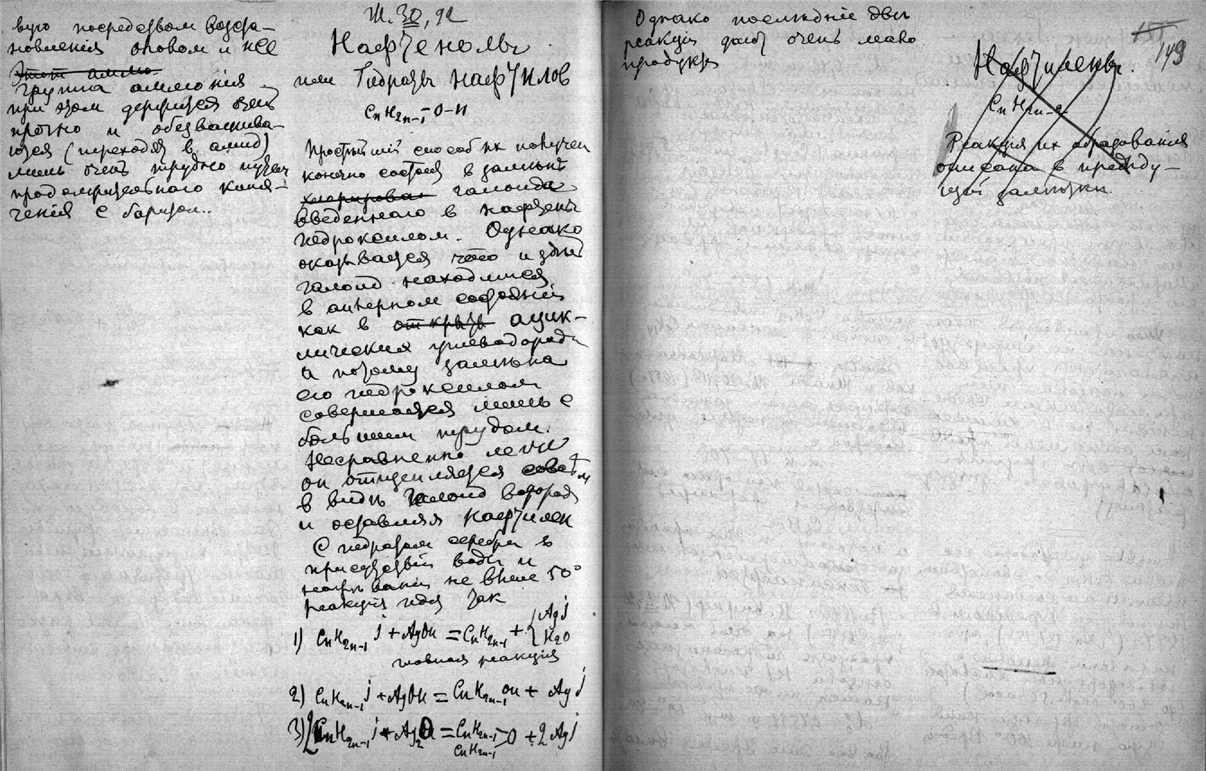 вую посредством возста-
новления оловом и HCl
Этот аммо
группа аммония
при этом держится очень
прочно и обезвожива-
ется (переходя в амид)
лишь очень трудно путем
продолжительного кипя-
чения с баритом..
Ж. 30, 92
Нафтенолы
или Гидраты нафтилов
CnH2n-1-O-H
Простейший способ их получен
конечно состоит в замене
хлорирован галоида
введенного в нафтены
гидроксилом. Однако
оказывается что и здесь
галоид находится
в инертном состоянии
как в открыты ацик-
лических углеводородах
а потому замена
его гидроксилом
совершается лишь с
большим трудом.
Несравненно легче
он отщепляется совсем
в виде галоид водорода
и оставляя нафтилен
С гидратом серебра в
присутствии воды и
нагревании не выше 50°
реакция идет так
1) CnH2n-1 j + AgOH = CnH2n-1 + { Agj
H2O
главная реакция
2) CnH2n-1 j + AgOH = CnH2n-1 OH + Agj
3) 2CnH2n-1 j + Ag2O = CnH2n-1 O + 2Agj
CnH2n-1
Однако последние две
реакции дают очень мало
продукта
149
Нафтилены.
CnH2n-2
Реакция их образования
описана в предиду-
щей